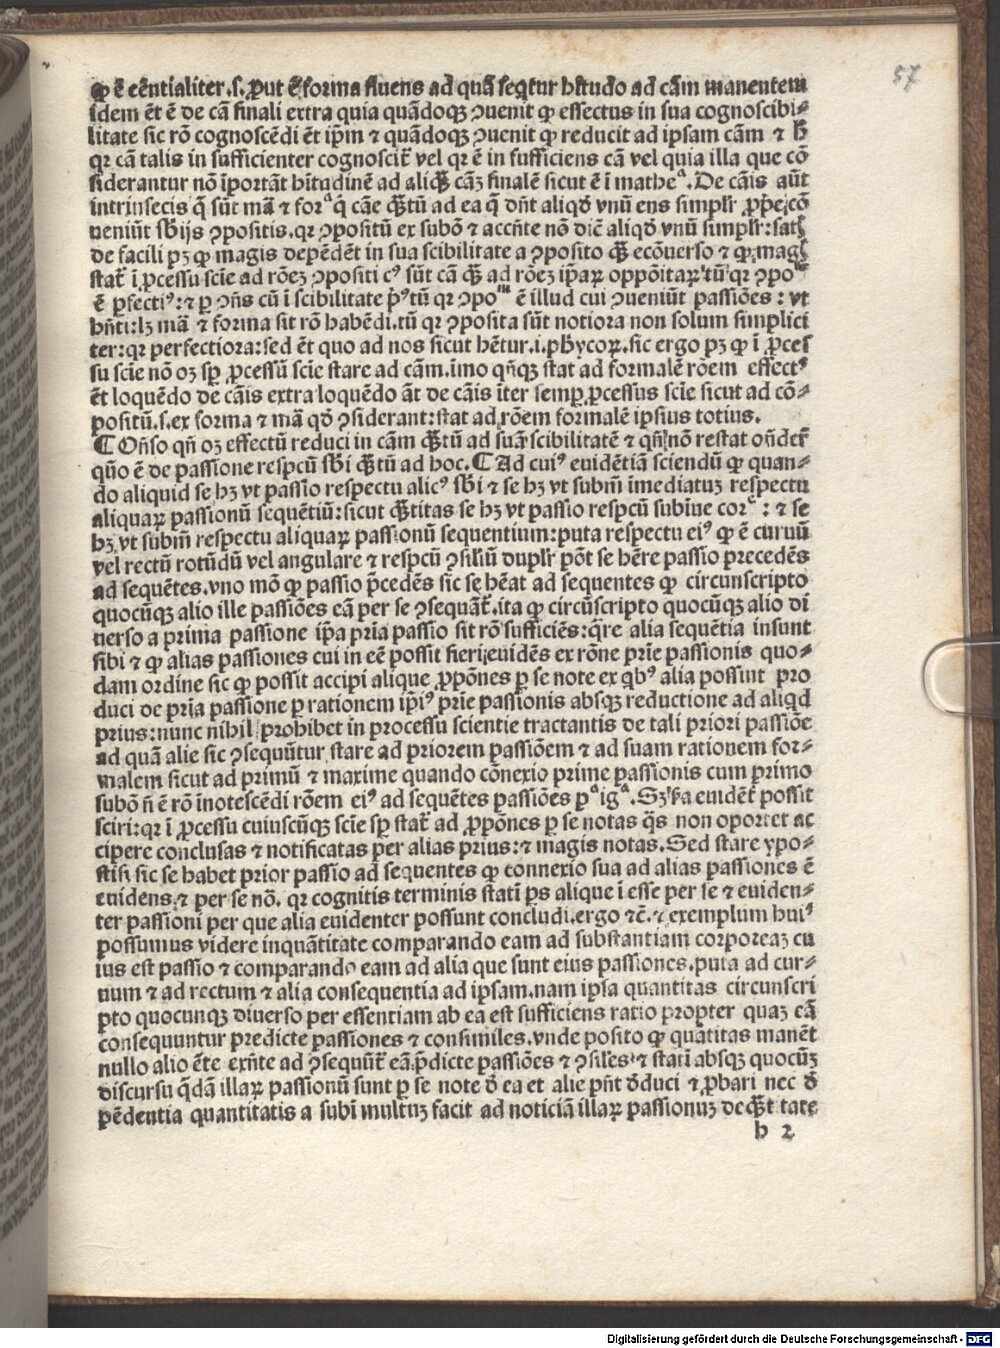 57
ꝙ ē eēntialiter.s.ꝓut ē forma fluens ad quā seqtur hītudo ad cām manentem
Idem ēt ē de cā finali extra quia quādoqꝫ ↄuenit ꝙ effectus in sua cognoscibi⸗
litate sic rō cognoscēdi ēt ip̄m ⁊ quādoqꝫ ↄuenit ꝙ reducit ad ipsam cām ⁊ h̄
qꝛ cā talis in sufficienter cognoscit̄ vel qꝛ ē in sufficiens cā vel quia illa que cō
siderantur nō īportāt hītudinē ad aliqḡ cāꝫ finalē sicut ē ī matheᵃ. De cāis aūt
intrinsecis q̄ sūt mā ⁊ forᵃ q̄ cāe q̄ꝫtū ad ea q̄ dn̄t aliqđ vnū ens simplr̄ ꝓp̄e cō
ueniūt sb̄ijs ↄpositis.qꝛ ↄpositū ex subō ⁊ accn̄te nō diē aliqđ vnū simplr̄:
de facili pꝫ ꝙ magis depēdēt in sua scibilitate a ↄposito qꝫ̄ ecōuerso ⁊ ꝙ mag
stat̄ ī ꝓcessu scīe ad rōeꝫ ↄpositi cꝰ sūt cā qꝫ̄ ad rōeꝫ ip̄aꝝ oppōitaꝝ tū qꝛ ↄpoᵐ
ē ꝑfectiꝰ:⁊ ꝑ ↄn̄s cū ī scibilitate p̄ꝰ tū qꝛ ↄpoᵐ ē illud cui ↄueniūt passiōes: vt
hn̄ti:lꝫ mā ⁊ forma sit rō habēdi.tū qꝛ ↄposita sūt notiora non solum simplici
ter:qꝛ perfectiora:sed ēt quo ad nos sicut hētur.i.phycoꝝ.sic ergo pꝫ ꝙ ī ꝓces
su scīe nō oꝫ sꝑ ꝓcessū scīe stare ad cām.imo qn̄qꝫ stat ad formalē rōem effectꝰ
ēt loquēdo de cāis extra loquēdo āt de cāis īter semꝑ ꝓcessus scīe sicut ad cō⸗
positū.s.ex forma ⁊ mā qđ ↄsiderant:stat ad rōem formalē ipsius totius.
¶ Oñso qn̄ oꝫ effectū reduci in cām qꝫ̄tū ad suā scibilitatē ⁊ qn̄ nō restat on̄der̄
qūo ē de passione respcū sb̄i qꝫ̄tū ad hoc. ¶ Ad cuiꝰ euidētiā sciendū ꝙ quan⸗
do aliquid se hꝫ vt passio respectu alicꝰ sb̄i ⁊ se hꝫ vt subm̄ īmediatuꝫ respectu
aliquaꝝ passionū sequētiū:sicut qꝫ̄titas se hꝫ vt passio respcū subiue corᶜ : ⁊ se
hꝫ vt subm̄ respectu aliquaꝝ passionū sequentium:puta respectu eiꝰ ꝙ ē curuū
vel rectū rotūdū vel angulare ⁊ respcū ↄsiliū duplr̄ pōt se hēre passio precedēs
ad sequētes.vno mō ꝙ passio p̄cedēs sic se hēat ad sequentes ꝙ circunscripto
quocūqꝫ alio ille passiōes eā per se ↄsequāt̄.ita ꝙ circūscripto quocūqꝫ alio di
uerso a prima passione ip̄a pria passio sit rō sufficiēs:q̄re alia sequētia insunt
sibi ⁊ ꝙ alias passiones cui in eē possit fieri:euidēs ex rōne prīe passionis quo⸗
dam ordine sic ꝙ possit accipi alique ꝓpōnes ꝑ se note ex qbꝰ alia possint pro
duci de pria passione ꝑ rationem ip̄iꝰ prīe passionis absqꝫ reductione ad aliqd
prius:nunc nihil prohibet in processu scientie tractantis de tali priori passiōe
ad quā alie sic ↄsequūtur stare ad priorem passiōem ⁊ ad suam rationem for⸗
malem sicut ad primū ⁊ maxime quando cōnexio prime passionis cum primo
subō n̄ ē rō īnotescēdi rōem eiꝰ ad sequētes passiōes pᵃ igᵃ. euidēt̄ possit
sciri:qꝛ ī ꝓcessu cuiuscūqꝫ scīe sꝑ stat̄ ad ꝓpōnes ꝑ se notas q̄s non oportet ac
cipere conclusas ⁊ notificatas per alias prius:⁊ magis notas. Sed stare ypo⸗
stisi sic se habet prior passio ad sequentes ꝙ connexio sua ad alias passiones ē
euidens.⁊ per se nō. qꝛ cognitis terminis statī ps alique ī esse per se ⁊ euiden⸗
ter passioni per que alia euidenter possunt concludi.ergo ⁊c̄. ⁊ exemplum huiꝰ
possumus videre inquātitate comparando eam ad substantiam corporeaꝫ cu
ius est passio ⁊ comparando eam ad alia que sunt eius passiones.puta ad cur⸗
uum ⁊ ad rectum ⁊ alia consequentia ad ipsam.nam ipsa quantitas circunscri
pto quocunqꝫ diuerso per essentiam ab ea est sufficiens ratio propter quaꝫ eā
consequuntur predicte passiones ⁊ consimiles.vnde posito ꝙ quātitas manēt
nullo alio ēte exn̄te ad ↄsequūt̄ eā p̄dicte passiōes ⁊ ↄsiles ⁊ statī absqꝫ quocūꝫ
discursu q̄dā illaꝝ passionū sunt ꝑ se note đ ea et alie pn̄t đduci ⁊ ꝓbari nec đ
pēdentia quantitatis a subī multuꝫ facit ad noticiā illaꝝ passionuꝫ de qꝫ̄t tate
h 2
Digitalisierung gefördert durch die Deutsche Forschungsgemeinschaft - DFG